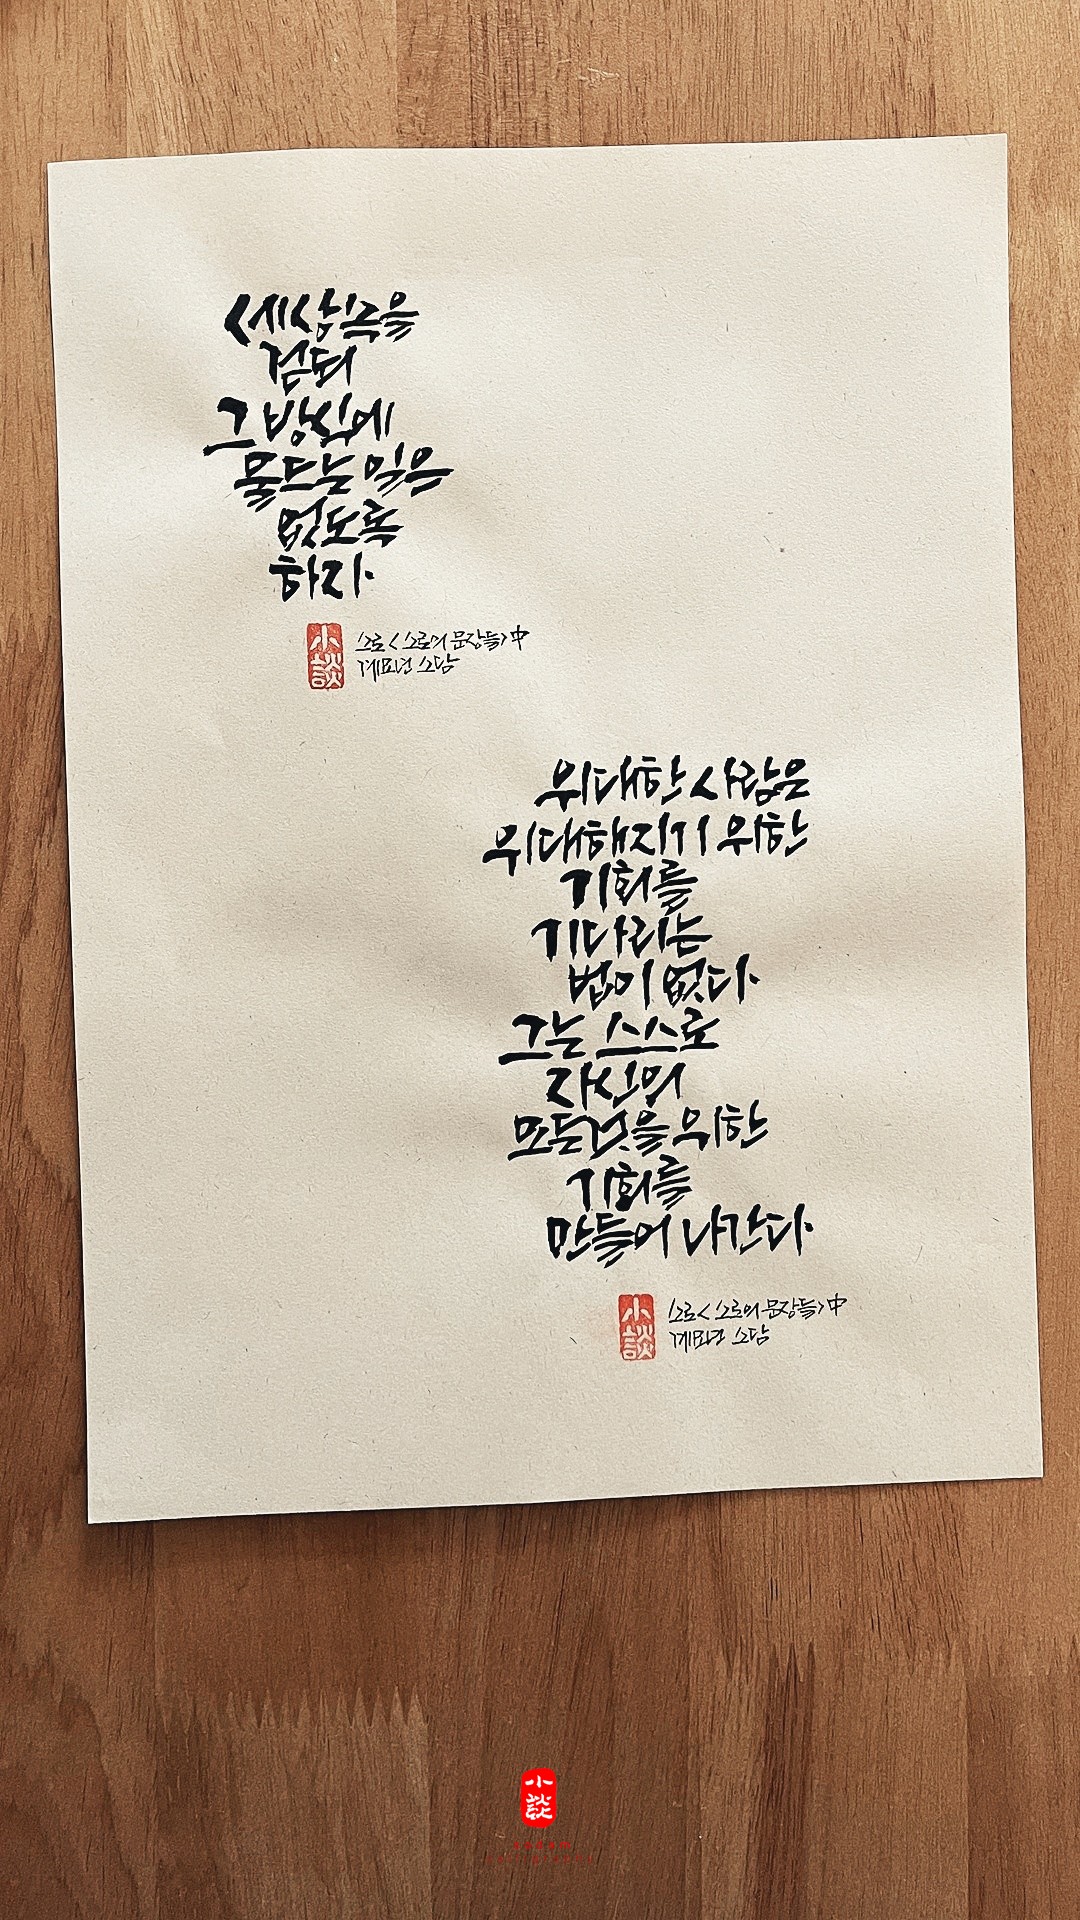 세상 속을
걷되
그 방식에
물드는 일은
없도록
하자.
小談
소로 <소로의 문장들> 中
계묘년 소담
위대한 사람은
위대해지기 위한
기회를
기다리는
법이 없다.
그는 스스로
자신의
모든것을 위한
기회를
만들어 나간다.
小談
소로 <소로의 문장들> 中
계묘년 소담
小談